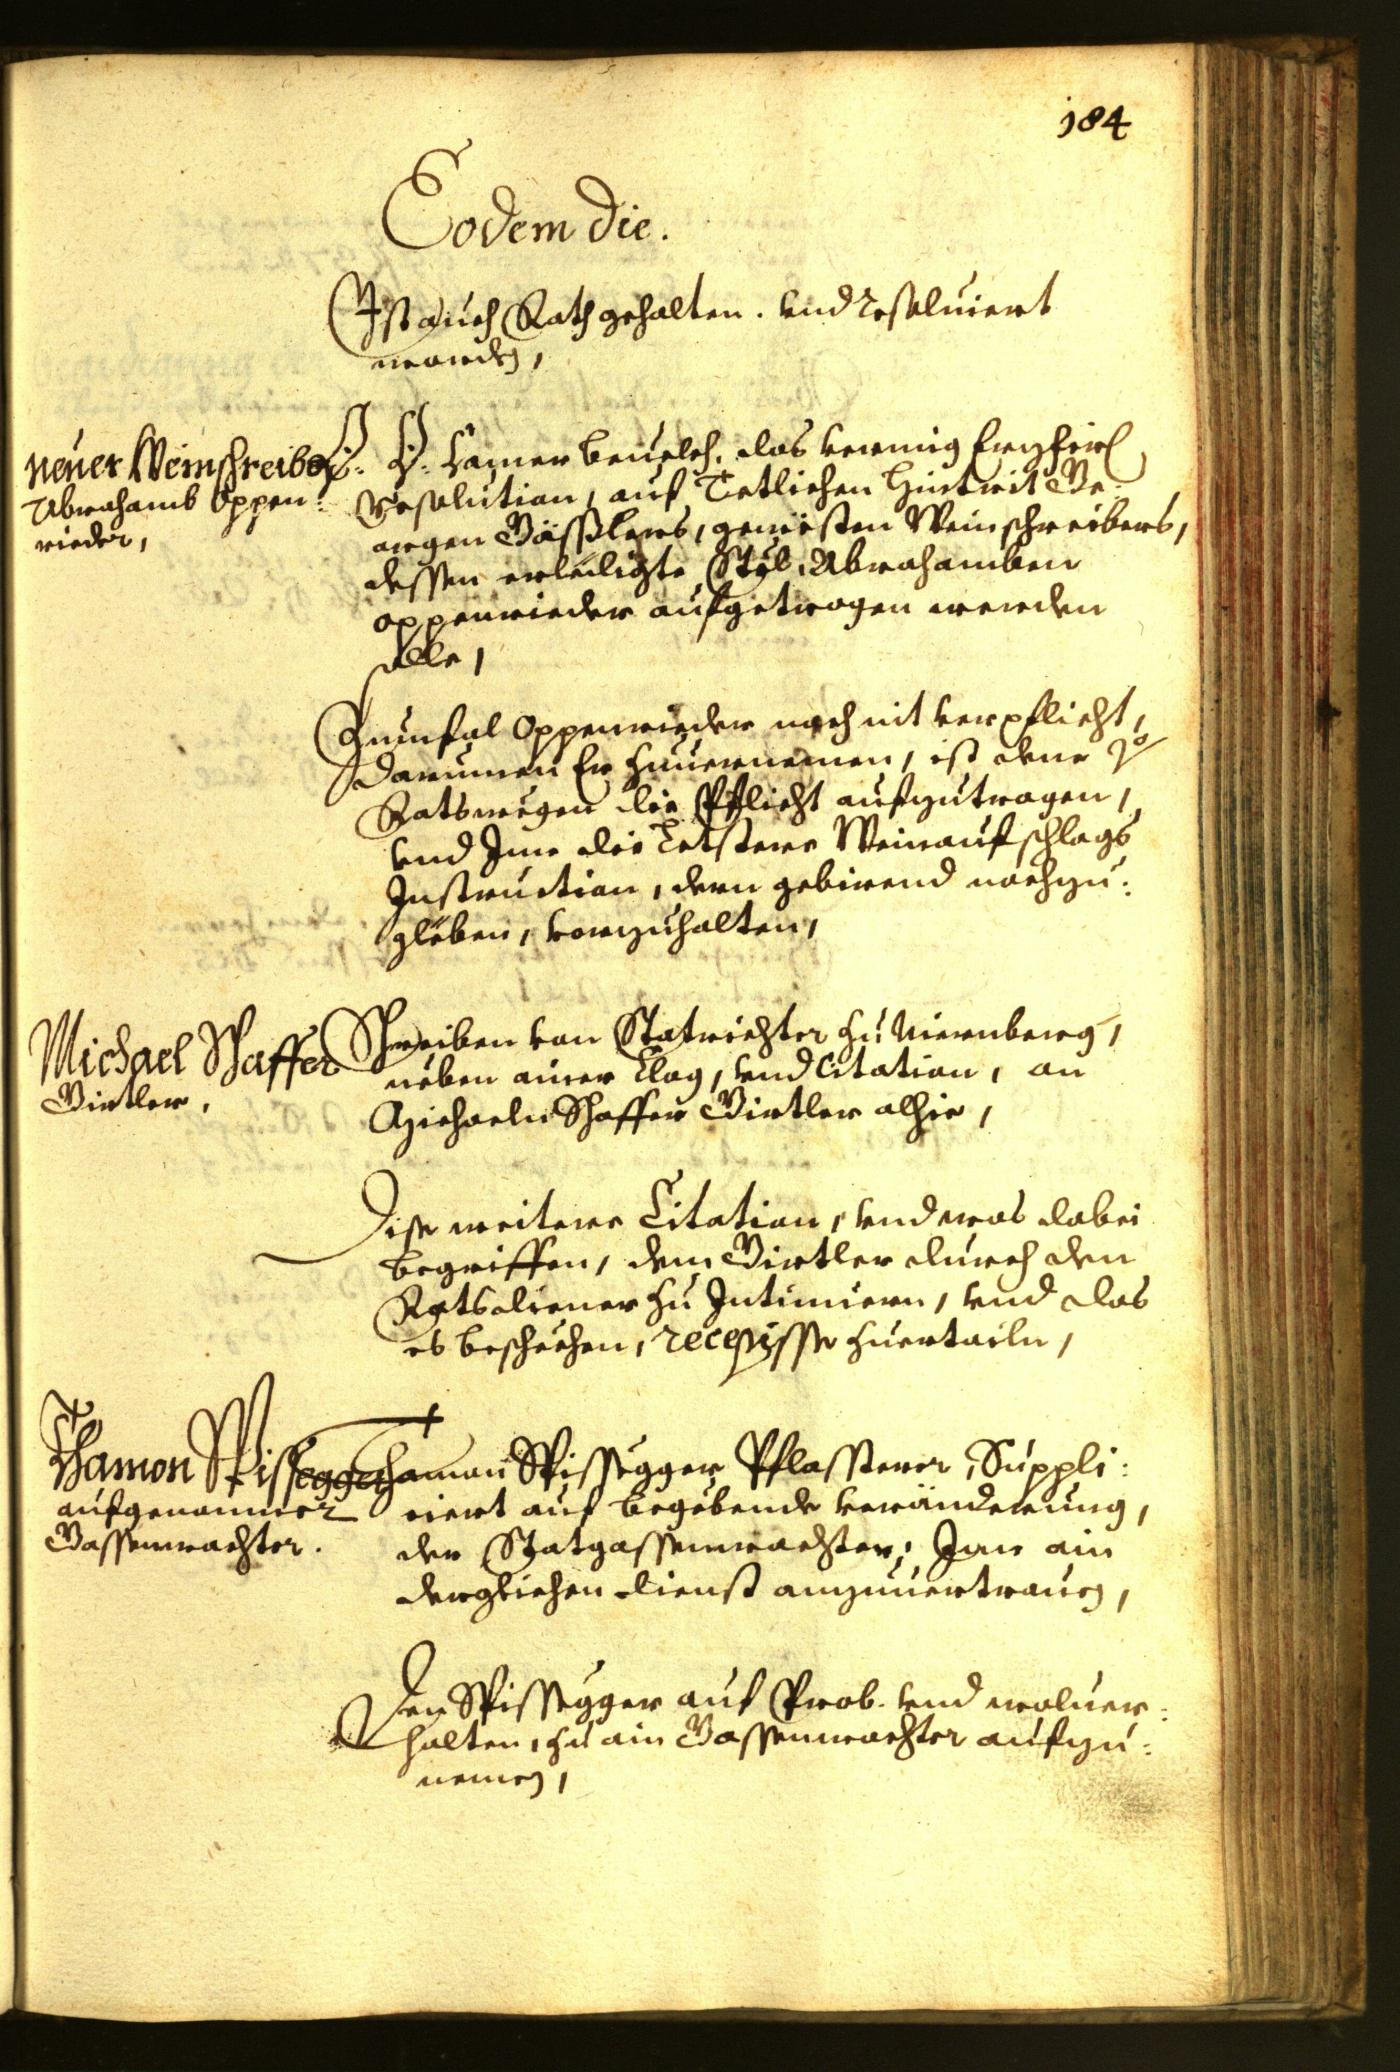 184
Eodem die.
Ist auch Rath gehalten. vnd resoluiert
worden,
neuer Weinschreiber
Abrahamb Oppen:
rieder,
O: Ö: Camer beuelch, das vermüg Erzfürl
Resolution, auf Tetlichen Hintrit Ge:
orgen Gässlers, gewesten Weinschreibers,
dessen erledigte Stöll, Abrahamben
Oppenrieder aufgetragen werden
solle,
Zumfal Oppenrieder noch nit verpflicht,
Darumen Er zuuernemen, ist dene
Rats wegen die Pflicht aufzutragen,
vnd Ime die Letstere Weinaufschlags
Instruction, dern gebirend nachzu:
gleben, vorzuhalten,
Michael Schaffer
Girtler,
Schreiben von Statrichter zu Niernberg,
neben ainer Clag, vnd Citation, an
Michaeln Schaffer Girtler alhie,
Dise weitere Citation, vnd was dabei
begriffen, dem Girtler durch den
Ratsdiener zu Intimiern, vnd das
es beschechen, recepisse zuertailn,
Thamon Spissegger
aufgenomner
Gassenwachter.
Thaman Spissegger Pflassterer, Suppli:
ciert auf begebende veränderung,
der Statgassenwachter, Ime ain
dergleichen dienst anzuuertrauen,
Den Spissegger auf Prob. vnd woluer:
halten, zu ain Gassenwachter aufzu:
nemen,